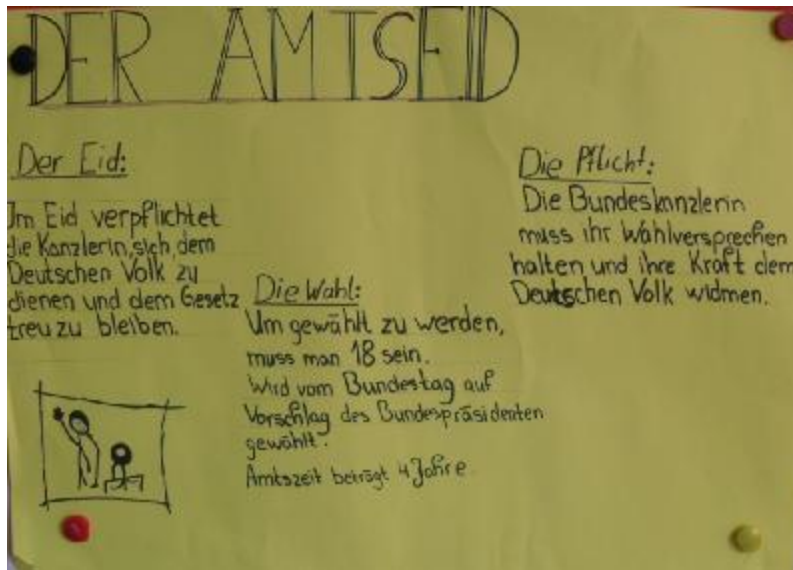 DER AMTSEID
Der Eid:
Im Eid verpflichtet
die Kanzlerin, sich dem
Deutschen Volk zu
dienen und dem Gesetz
treu zu bleiben.
Die Wahl:
Um gewählt zu werden,
muss man 18 sein.
Wird vom Bundestag auf
Vorschlag des Bundespräsidenten
gewählt.
Amtszeit beträgt 4 Jahre
Die Pflicht:
Die Bundeskanzlerin
muss ihr Wahlversprechen
halten und ihre Kraft dem
Deutschen Volk widmen.